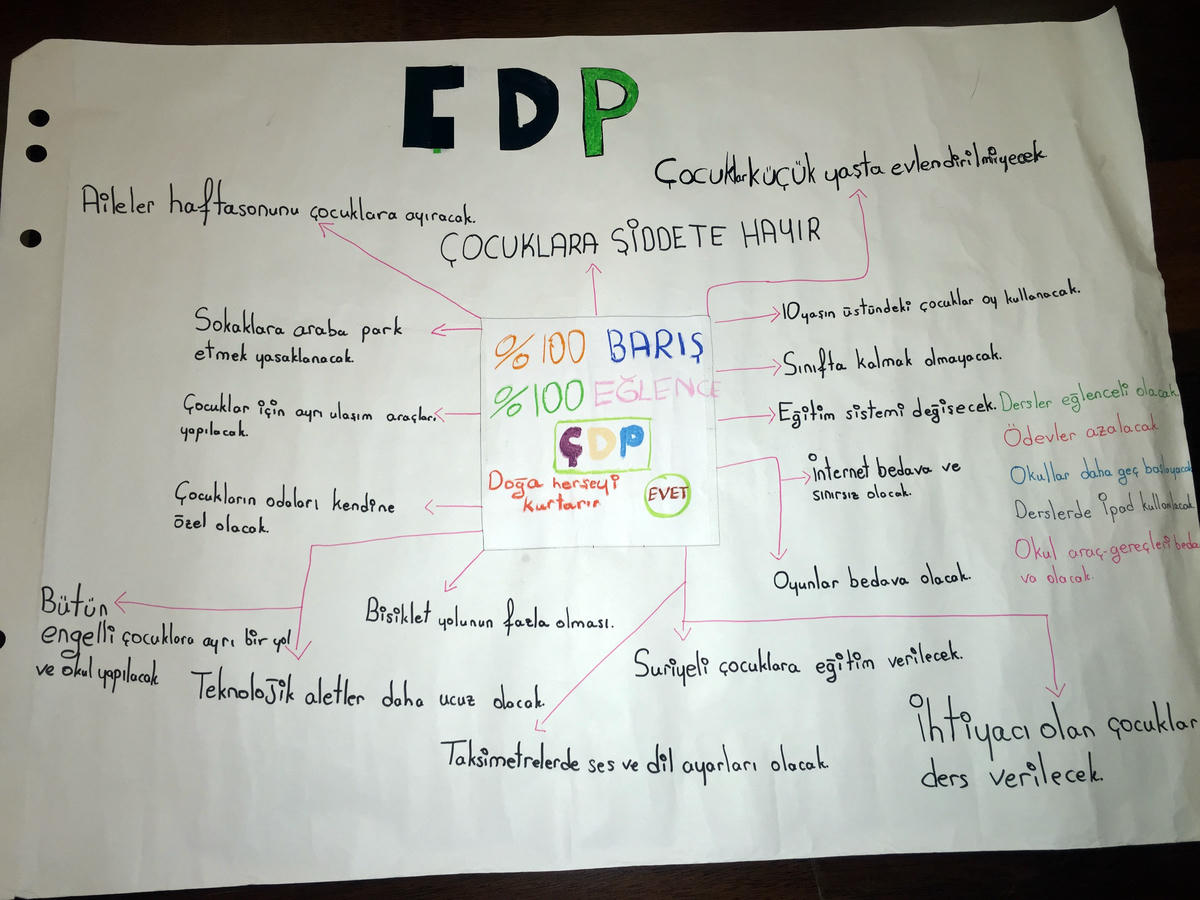 ÇDP
Çocuklar küçük yaşta evlendirilmiyecek
Aileler haftasonunu çocuklara ayıracak.
ÇOCUKLARA ŞİDDETE HAYIR
Sokaklara araba park
etmek yasaklanacak.
Çocuklar için ayrı ulaşım araçları
yapılacak.
Çocukların odaları kendine
özel olacak.
%100 BARIŞ
%100 EĞLENCE
ÇDP
Doğa herseyi
kurtarır
EVET
10 yaşın üstündeki çocuklar oy kullanacak.
Sınıfta kalmak olmayacak.
Eğitim sistemi değisecek.
Dersler eğlenceli olacak
Ödevler azalacak
Okullar daha geç başlayacak
Derslerde ipad kullanılacak
Okul araç-gereçleri beda
va olacak.
İnternet bedava ve
sınırsız olacak.
Oyunlar bedava olacak.
Bütün
engelli çocuklara ayrı bir yol
ve okul yapılacak
Bisiklet yolunun fazla olması.
Teknolojik aletler daha ucuz olacak.
Suriyeli çocuklara eğitim verilecek.
Taksimetrelerde ses ve dil ayarları olacak.
İhtiyacı olan çocuklar
ders verilecek.